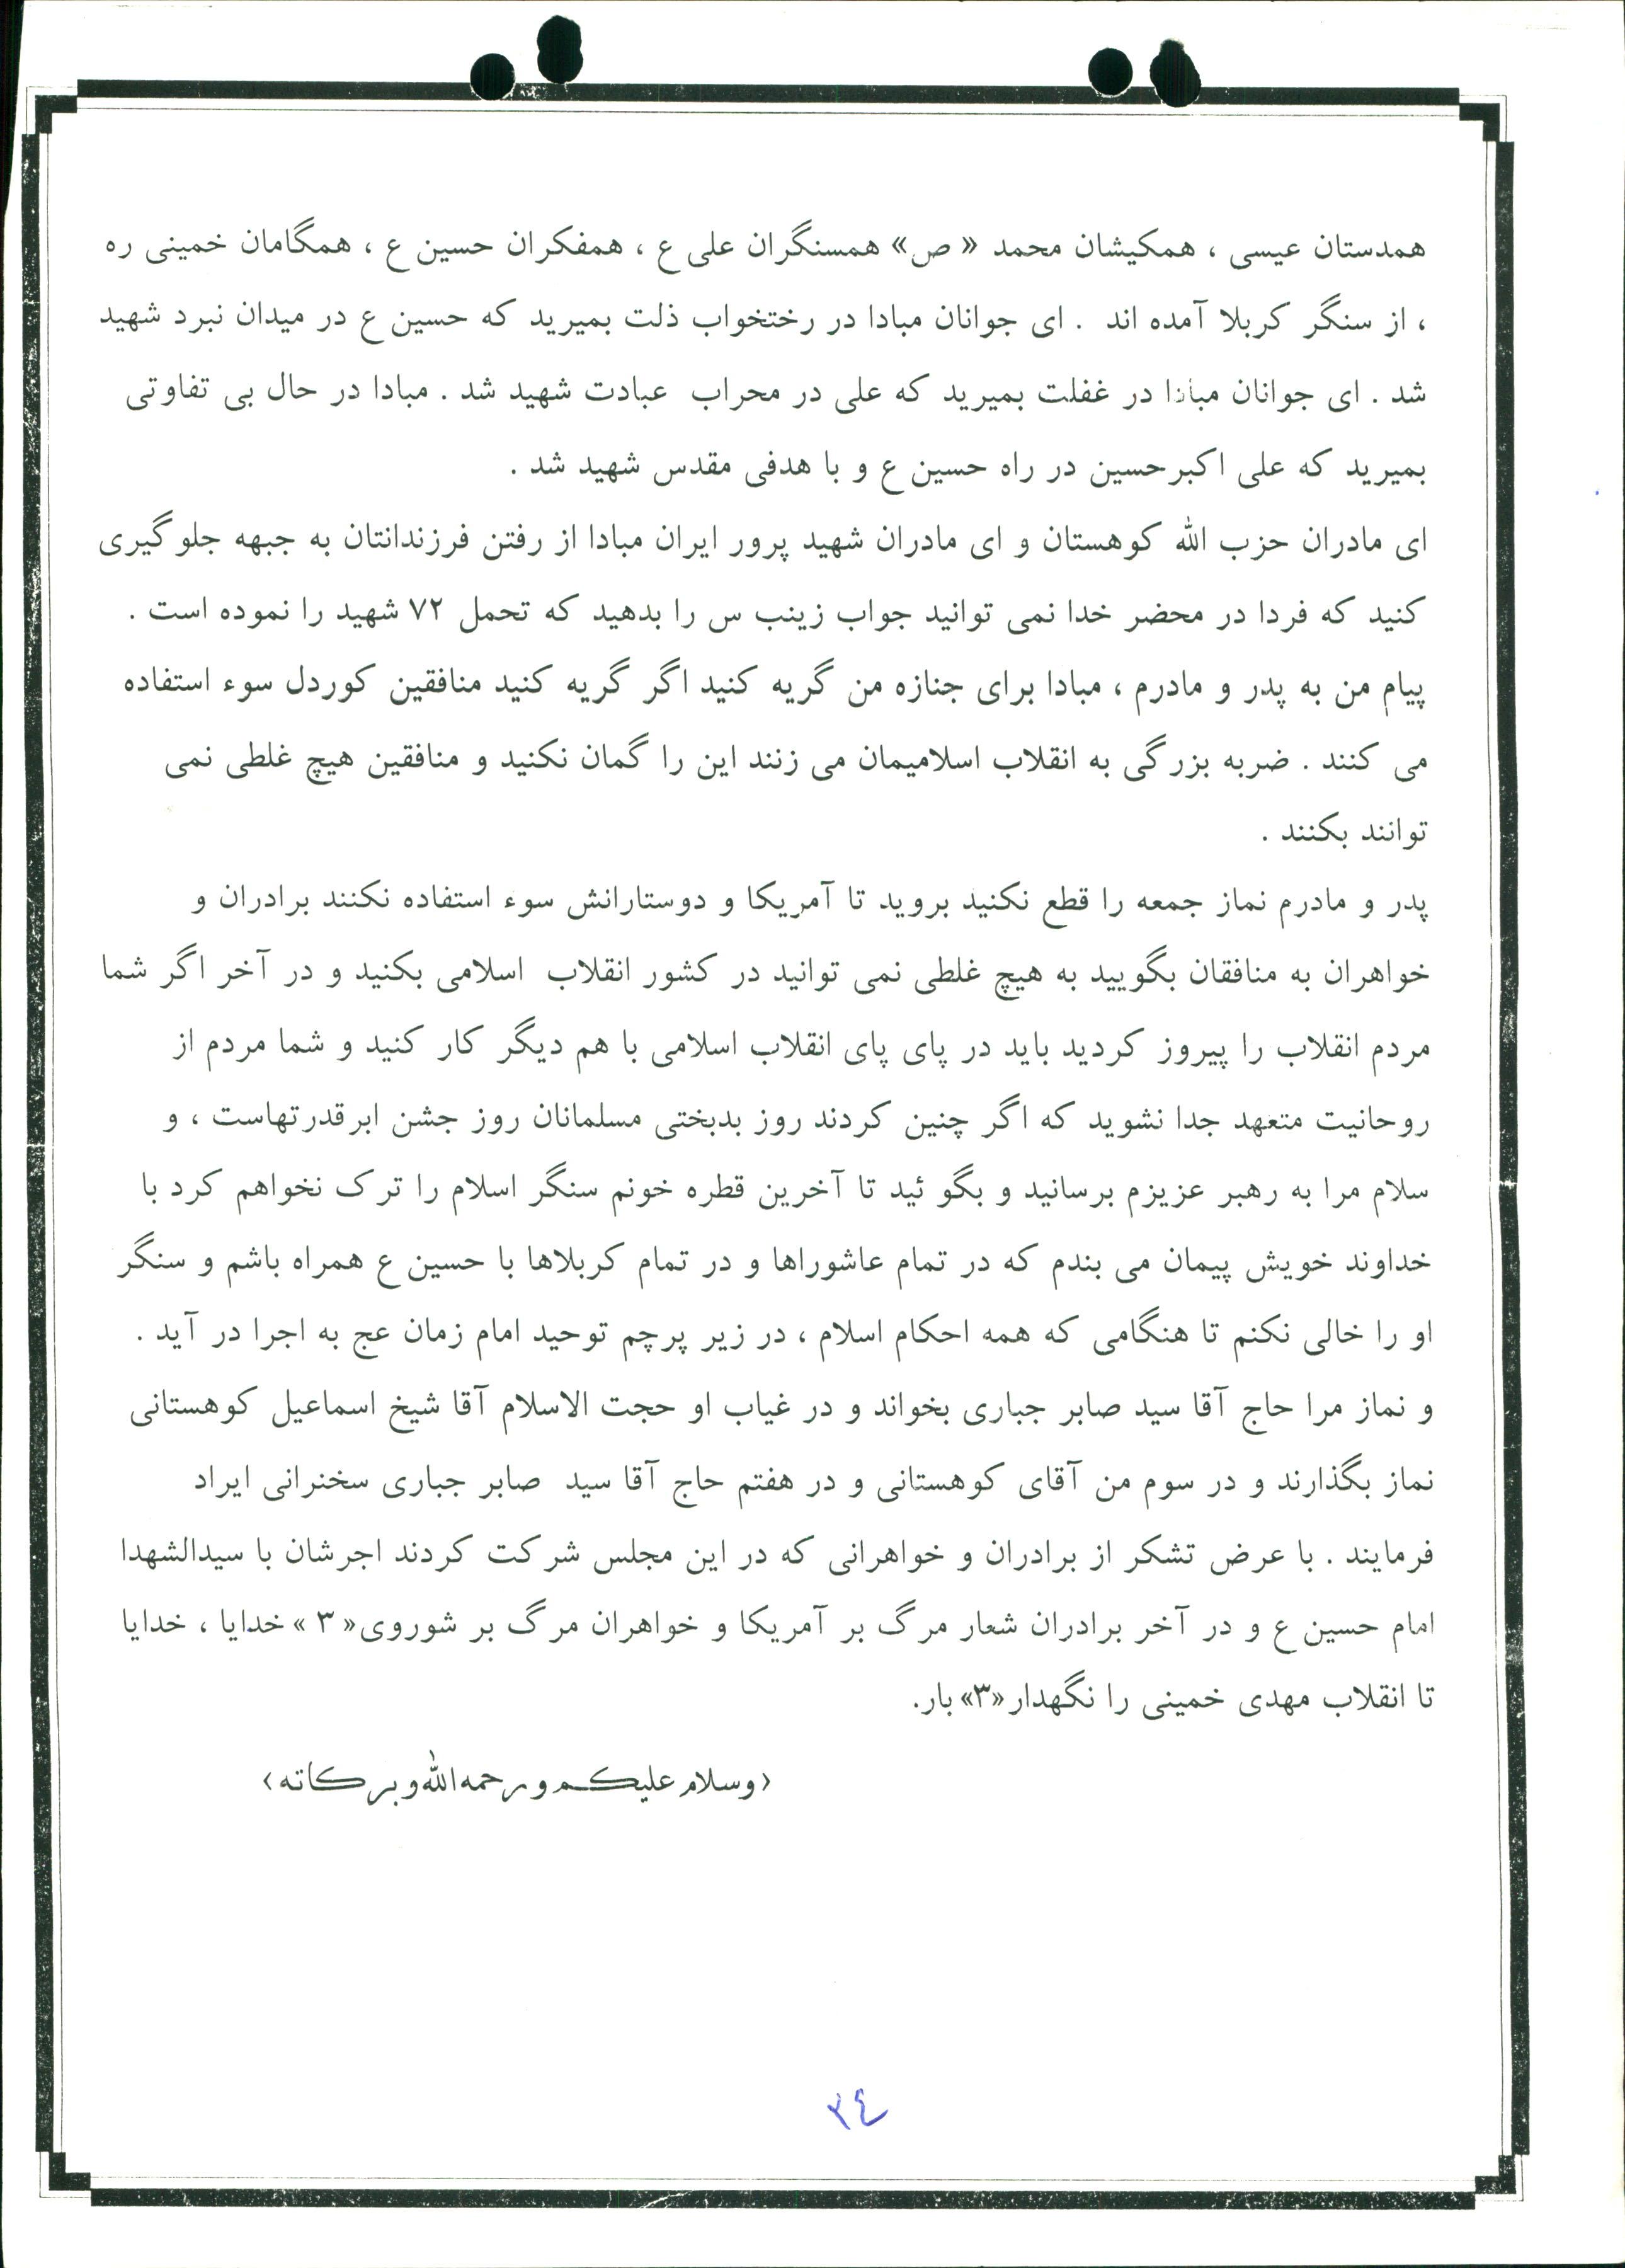 همدستان عیسی ، همکیشان محمد « ص» همسنگران علی ع ، همفکران حسین ع ، همگامان خمینی ره
، از سنگر کربلا آمده اند . ای جوانان مبادا در رختخواب ذلت بمیرید که حسین ع در میدان نبرد شهید
شد . ای جوانان مبادا در غفلت بمیرید که علی در محراب عبادت شهید شد . مبادا در حال بی تفاوتی
بمیرید که علی اکبرحسین در راه حسین ع و با هدفی مقدس شهید شد .
ای مادران حزب الله کوهستان و ای مادران شهید پرور ایران مبادا از رفتن فرزندانتان به جبهه جلوگیری
کنید که فردا در محضر خدا نمی توانید جواب زینب س را بدهید که تحمل ۷۲ شهید را نموده است .
پیام من به پدر و مادرم ، مبادا برای جنازه من گریه کنید اگر گریه کنید منافقین کوردل سوء استفاده
می کنند . ضربه بزرگی به انقلاب اسلامیمان می زنند این را گمان نکنید و منافقین هیچ غلطی نمی
توانند بکنند .
پدر و مادرم نماز جمعه را قطع نکنید بروید تا آمریکا و دوستارانش سوء استفاده نکنند برادران و
خواهران به منافقان بگویید به هیچ غلطی نمی توانید در کشور انقلاب اسلامی بکنید و در آخر اگر شما
مردم انقلاب را پیروز کردید باید در پای پای انقلاب اسلامی با هم دیگر کار کنید و شما مردم از
روحانیت متعهد جدا نشوید که اگر چنین کردند روز بدبختی مسلمانان روز جشن ابرقدرتهاست ، و
سلام مرا به رهبر عزیزم برسانید و بگو ئید تا آخرین قطره خونم سنگر اسلام را ترک نخواهم کرد با
خداوند خویش پیمان می بندم که در تمام عاشوراها و در تمام کربلاها با حسین ع همراه باشم و سنگر
او را خالی نکنم تا هنگامی که همه احکام اسلام ، در زیر پرچم توحید امام زمان عج به اجرا در آید .
و نماز مرا حاج آقا سید صابر جباری بخواند و در غیاب او حجت الاسلام آقا شیخ اسماعیل کوهستانی
نماز بگذارند و در سوم من آقای کوهستانی و در هفتم حاج آقا سید صابر جباری سخنرانی ایراد
فرمایند . با عرض تشکر از برادران و خواهرانی که در این مجلس شرکت کردند اجرشان با سیدالشهدا
امام حسین ع و در آخر برادران شعار مرگ بر آمریکا و خواهران مرگ بر شوروی« ۳ » خدایا ، خدایا
تا انقلاب مهدی خمینی را نگهدار«۳» بار.
‹وسلام علیکم و رحمه الله و برکاته›
۳٤